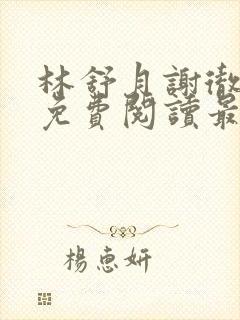 林舒月謝徹
免費閱讀最
楊惠妍